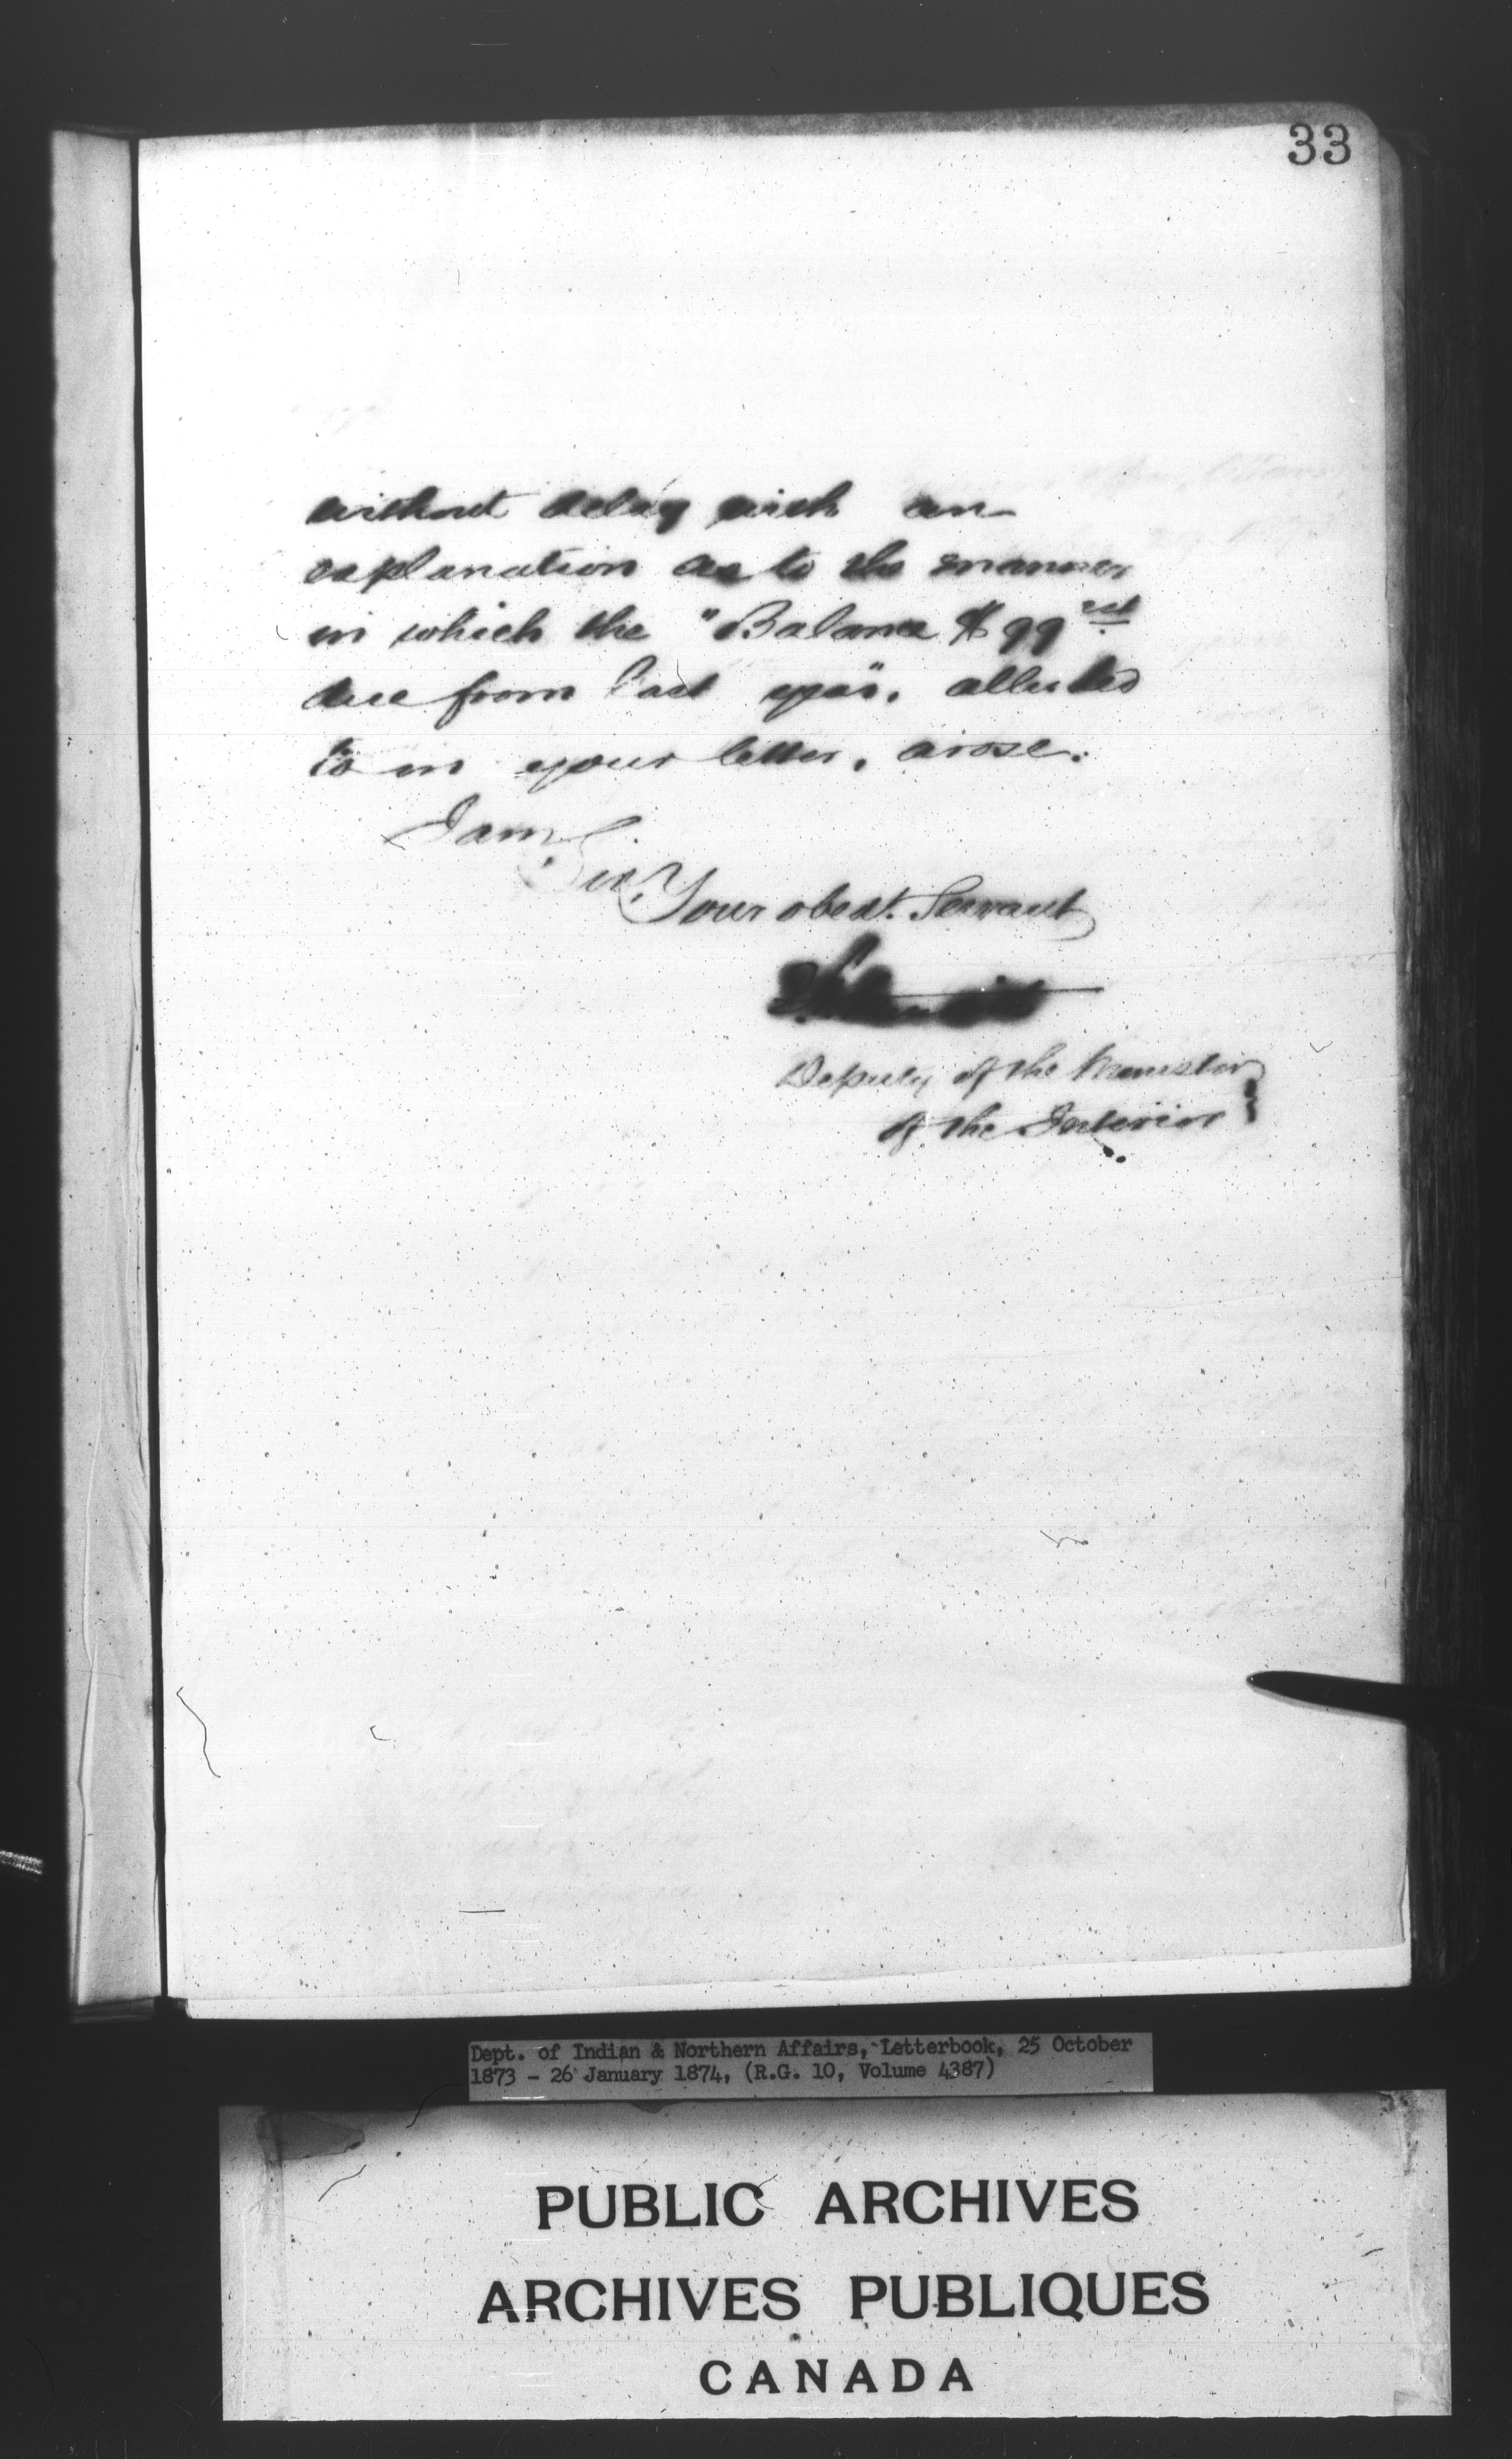 33
without delay with an
explanation as to the manner
in which the "Balance $99
due from last year", alluded
to in your letter, arose.
I am
Sir,
Your obedt. Servant
Deputy of the Minister
of the Interior
Dept. of Indian & Northern Affairs, Letterbook, 25 October
1873 - 26 January 1874, (R.G. 10, Volume 4387)
PUBLIC ARCHIVES
ARCHIVES PUBLIQUES
CANADA